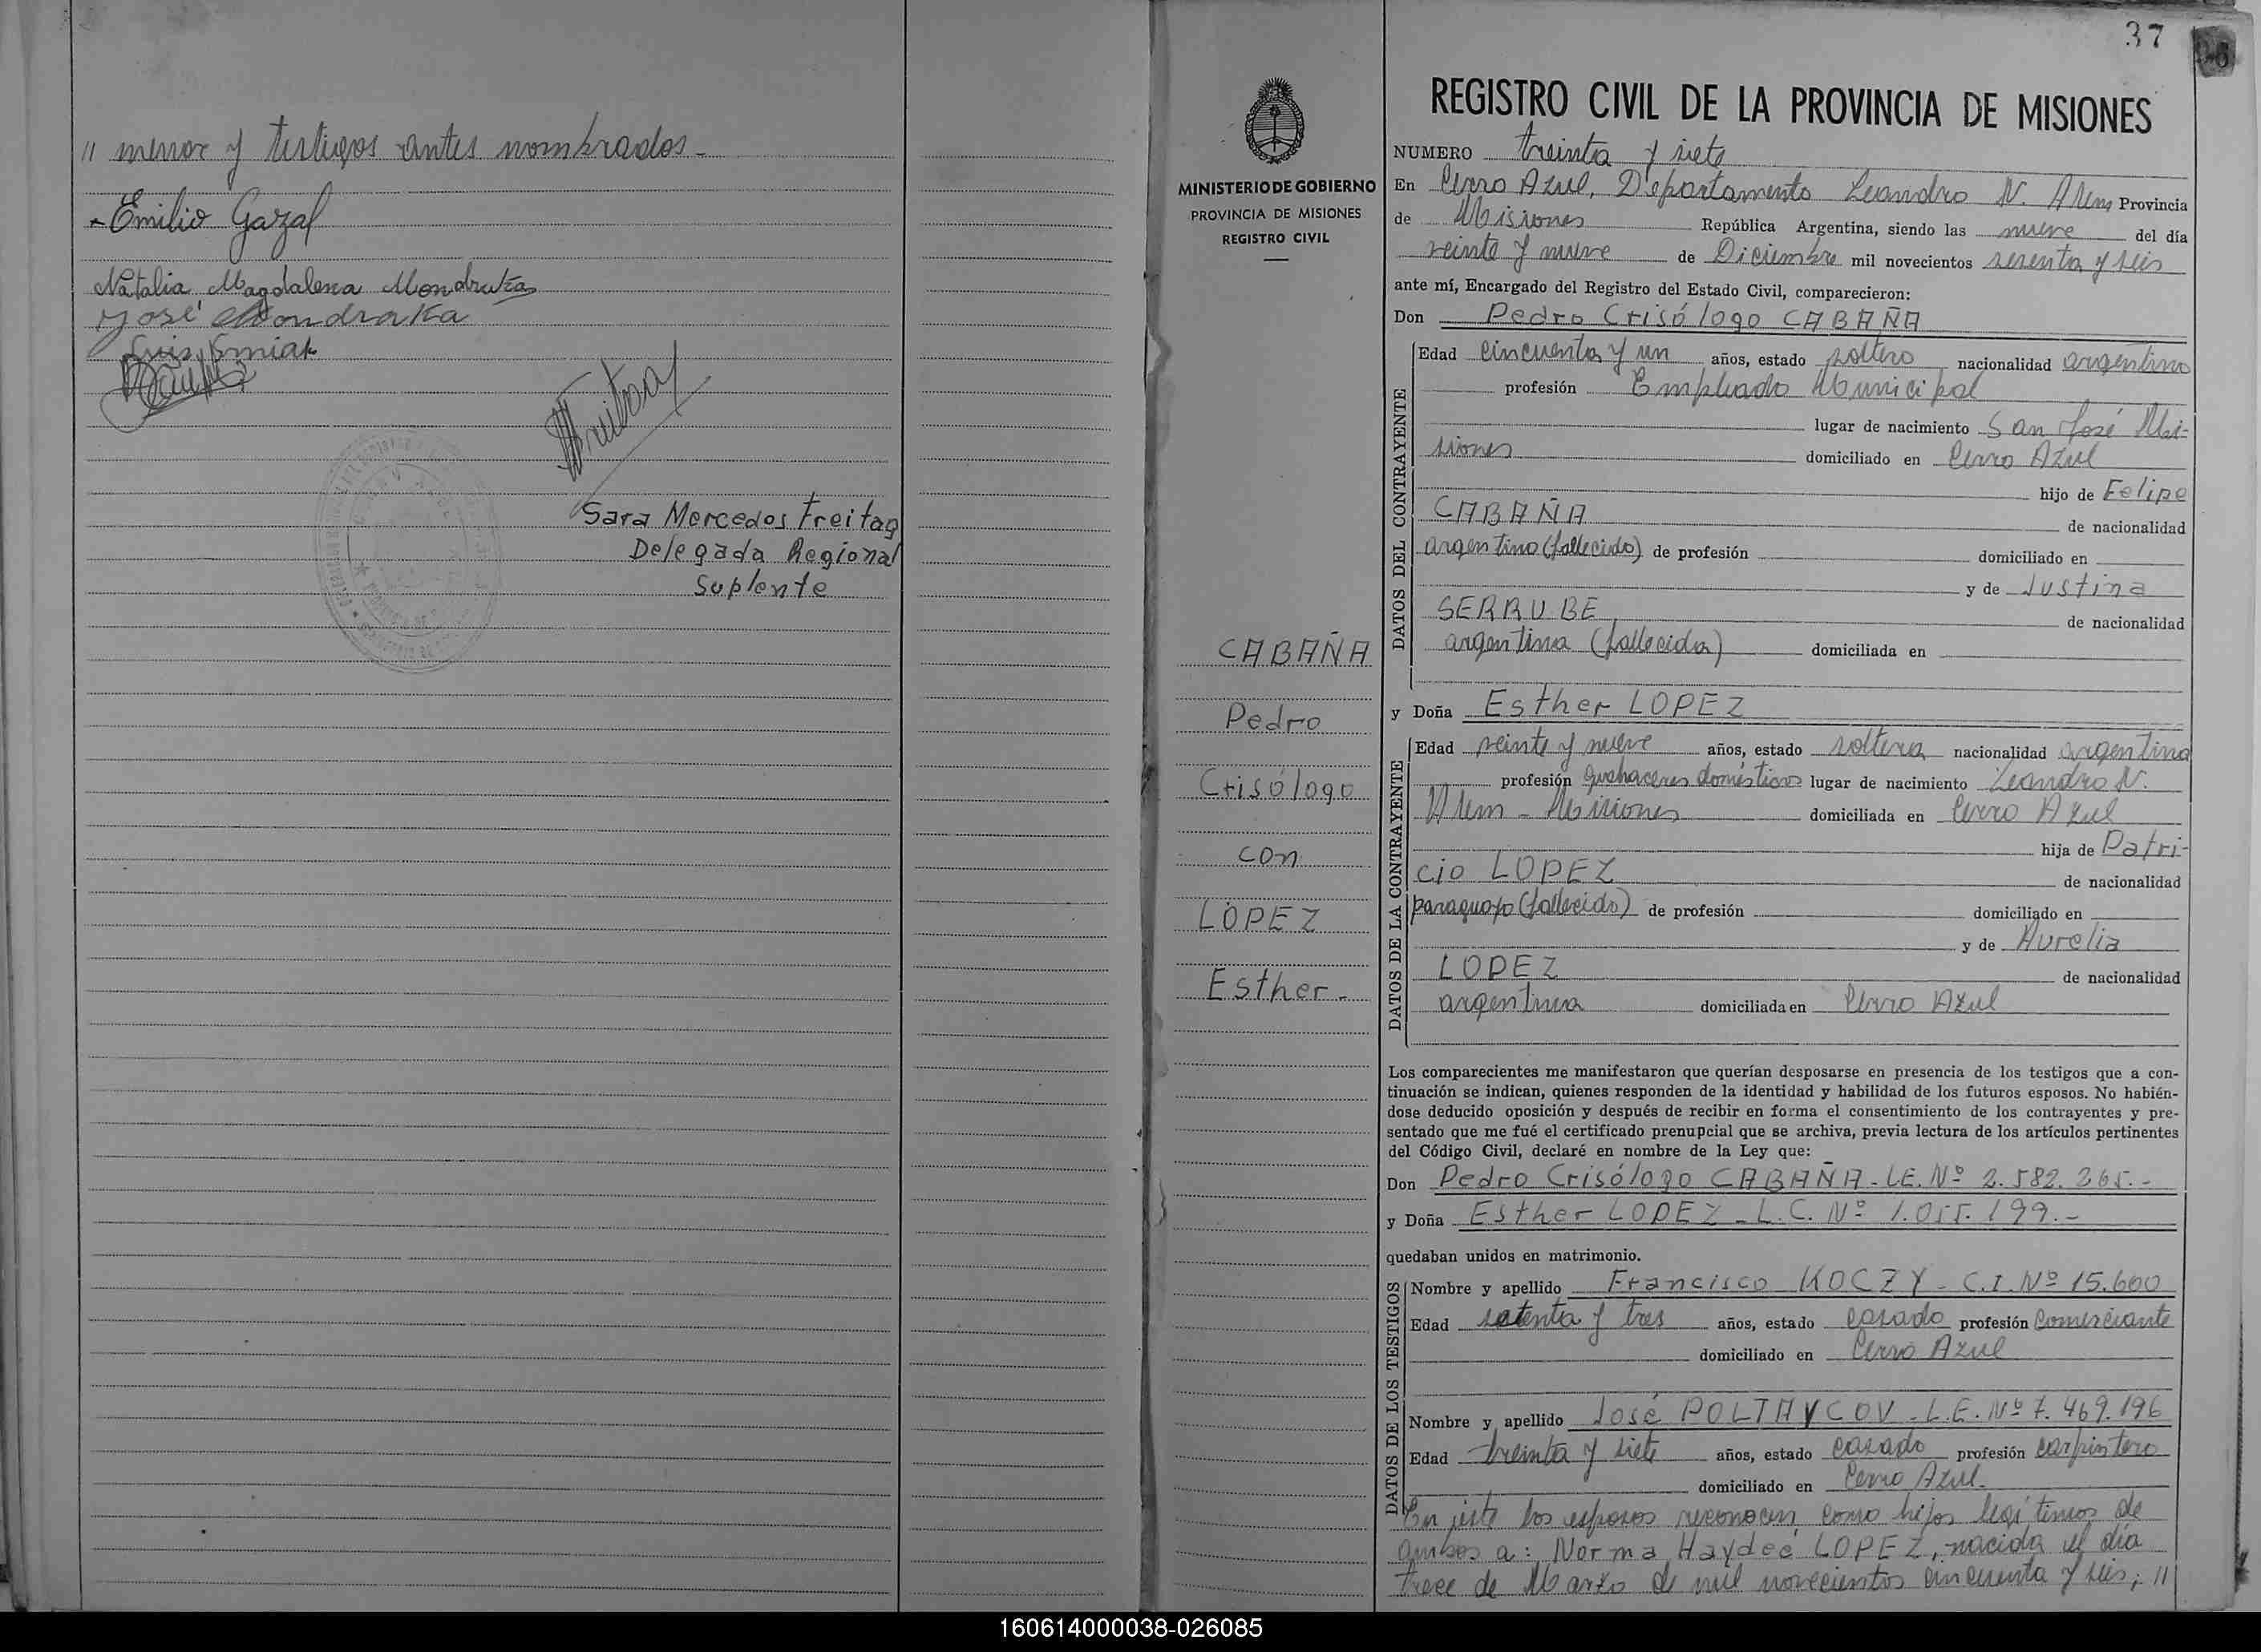 // menor y testigos antes nombrados -
Emilio Gazal
Natalia Magdalena Mondrutka
José Mondraka
Luis Smiak
Sara Mercedes Freitag
Delegada Regional
Suplente
37
MINISTERIO DE GOBIERNO
PROVINCIA DE MISIONES
REGISTRO CIVIL
CABAÑA
Pedro
Crisólogo
con
LOPEZ
Esther -
REGISTRO CIVIL DE LA PROVINCIA DE MISIONES
NUMERO treinta y siete
En Cerro Azul, Departamento Leandro N. Alem Provincia
de Misiones República Argentina, siendo las nueve del día
veinte y nueve de Diciembre mil novecientos sesenta y seis
ante mí, Encargado del Registro del Estado Civil, comparecieron:
Don Pedro Crisólogo CABAÑA
DATOS DEL CONTRAYENTE
Edad cincuenta y un años, estado soltero nacionalidad argentino
profesión Empleado Municipal
lugar de nacimiento San José Mi-
siones domiciliado en Cerro Azul
hijo de Felipe
CABAÑA de nacionalidad
argentino (fallecido) de profesión domiciliado en
y de Justina
SERRUBE de nacionalidad
argentina (fallecida) domiciliada en
y Doña Esther LOPEZ
DATOS DE LA CONTRAYENTE
Edad veinte y nueve años, estado soltera nacionalidad argentina
profesión quehaceres domésticos lugar de nacimiento Leandro N.
Alem - Misiones domiciliada en Cerro Azul
hija de Patri-
cio LOPEZ de nacionalidad
paraguayo (fallecido) de profesión domiciliado en
y de Aurelia
LOPEZ de nacionalidad
argentina domiciliada en Cerro Azul
Los comparecientes me manifestaron que querían desposarse en presencia de los testigos que a con-
tinuación se indican, quienes responden de la identidad y habilidad de los futuros esposos. No habién-
dose deducido oposición y después de recibir en forma el consentimiento de los contrayentes y pre-
sentado que me fué el certificado prenupcial que se archiva, previa lectura de los artículos pertinentes
del Código Civil, declaré en nombre de la Ley que:
Don Pedro Crisólogo CABAÑA - LE. Nº 2.582.265.-
y Doña Esther LOPEZ - L.C. Nº 1.055.199.-
quedaban unidos en matrimonio.
DATOS DE LOS TESTIGOS
Nombre y apellido Francisco KOCZY - C.I. Nº 15.600
Edad setenta y tres años, estado casado profesión Comerciante
domiciliado en Cerro Azul
Nombre y apellido José POLTAYCOV - L.E. Nº 7.469.196
Edad treinta y siete años, estado casado profesión carpintero
domiciliado en Cerro Azul.
En éste los esposos reconocen como hijos legítimos de
ambos a: Norma Haydeé LOPEZ, nacida el día
trece de Marzo de mil novecientos cincuenta y seis; //
160614000038-026085